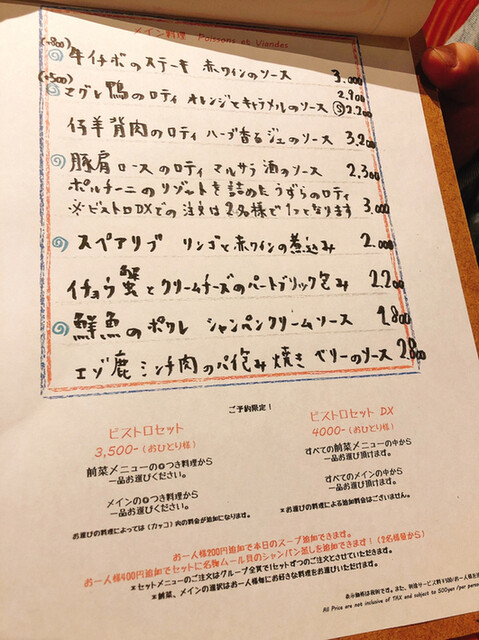 メイン料理 Poissons et Viandes
(+800)
牛イチボのステーキ 赤ワインのソース 3.000
(+500) 2.900
マグレ鴨のロティ オレンジとキャラメルのソース Ⓢ2.200
仔羊背肉のロティ ハーブ香るジュのソース 3.200
豚肩ロースのロティ マルサラ酒のソース 2.300
ポルチーニのリゾットを詰めたうずらのロティ
※ビストロDXでの注文は2名様で1つとなります 3.000
スペアリブ リンゴと赤ワインの煮込み 2.000
イチョウ蟹とクリームチーズのパートブリック包み 2.200
鮮魚のポワレ シャンパンクリームソース 1.800
エゾ鹿ミンチ肉のパイ包み焼き ベリーのソース 2.800
ご予約限定!
ビストロセット
3,500-(おひとり様)
前菜メニューの◎つき料理から
一品お選びください。
メインの◎つき料理から
一品お選びください。
お選びの料理によっては(カッコ)内の料金が追加になります。
ビストロセット DX
4000-(おひとり様)
すべての前菜メニューの中から
一品お選び頂けます。
すべてのメインの中から
一品お選び頂けます。
*お選びの料理による追加料金はございません。
お一人様200円追加で本日のスープ追加できます。
お一人様400円追加でセットに名物ムール貝のシャンパン蒸しを追加できます!(2名様から)
*セットメニューのご注文はグループ全員で1セットずつのご注文とさせていただきます。
*前菜、メインの選択はお一人様毎にお好きな料理をお選びいただけます。
表示価格は税別です。また、別途サービス料¥100/お一人様を
All Price are not inclusive of TAX and subject to 500yen /per person